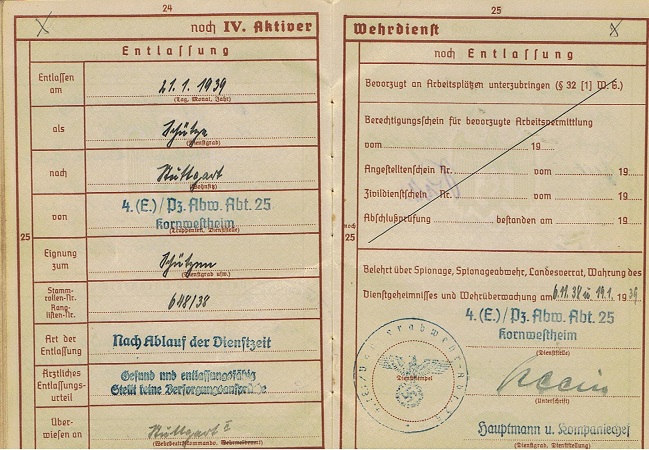 24
noch IV. Aktiver
Entlassung
Entlassen am
21.1.1939
(Tag, Monat, Jahr)
als
Schütze
(Dienstgrad)
nach
Stuttgart
(Wohnsitz)
von
4. (E.) / Pz. Abw. Abt. 25
Kornwestheim
(Truppenteil, Dienststelle)
25
Eignung zum
Schützen
(Dienstgrad usw.)
Stamm-
rollen-Nr.
Rang-
listen-Nr.
648/38
Art der
Entlassung
Nach Ablauf der Dienstzeit
Ärztliches
Entlassungs-
urteil
Gesund und entlassungsfähig
Stellt keine Versorgungsansprüche
Über-
wiesen an
Stuttgart I
(Wehrbezirkskommando, Wehrmeldeamt)
25
Wehrdienst
noch Entlassung
Bevorzugt an Arbeitsplätzen unterzubringen (§ 32 [1] W. G.)
Berechtigungsschein für bevorzugte Arbeitsvermittlung
vom 19
Angestelltenschein Nr. vom 19
Zivildienstschein Nr. vom 19
Abschlußprüfung bestanden am 19
noch
25
Belehrt über Spionage, Spionageabwehr, Landesverrat, Wahrung des
Dienstgeheimnisses und Wehrüberwachung am 6.11.38 u. 19.1. 1939
4. (E.) / Pz. Abw. Abt. 25
Kornwestheim
(Dienststelle)
Dienststempel
(Unterschrift)
Hauptmann u. Kompaniechef
(Dienstgrad, Dienststellung)